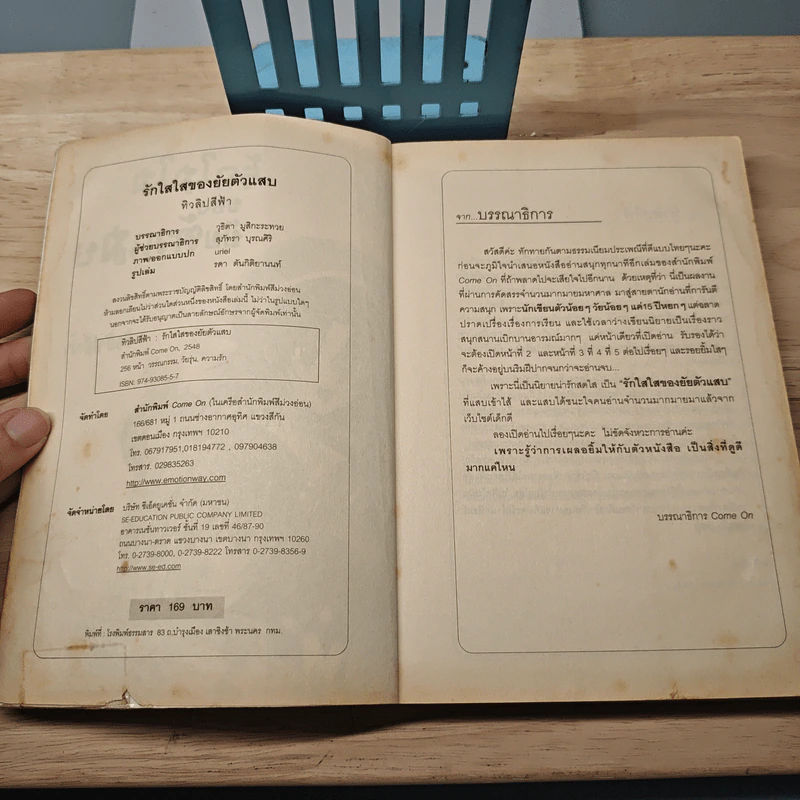 รักใสใสของยัยตัวแสบ
ทิวลิปสีฟ้า
บรรณาธิการ วุธิดา มูสิกะระทวย
ผู้ช่วยบรรณาธิการ สุภัทรา บุรณศิริ
ภาพ/ออกแบบปก uriel
รูปเล่ม รดา ตันกิติยานนท์
สงวนลิขสิทธิ์ตามพระราชบัญญัติลิขสิทธิ์ โดยสำนักพิมพ์สีม่วงอ่อน
ห้ามลอกเลียนไม่ว่าส่วนใดส่วนหนึ่งของหนังสือเล่มนี้ ไม่ว่าในรูปแบบใดๆ
นอกจากจะได้รับอนุญาตเป็นลายลักษ์อักษรจากผู้จัดพิมพ์เท่านั้น
ทิวลิปสีฟ้า : รักใสใสของยัยตัวแสบ
สำนักพิมพ์ Come On, 2548
256 หน้า วรรณกรรม, วัยรุ่น, ความรัก
ISBN: 974-93085-5-7
จัดทำโดย สำนักพิมพ์ Come On (ในเครือสำนักพิมพ์สีม่วงอ่อน)
166/681 หมู่ 1 ถนนช่างอากาศอุทิศ แขวงสีกัน
เขตดอนเมือง กรุงเทพฯ 10210
โทร. 067917951,018194772 , 097904638
โทรสาร. 029835263
http://www.emotionway.com
จัดจำหน่ายโดย บริษัท ซีเอ็ดยูเคชั่น จำกัด (มหาชน)
SE-EDUCATION PUBLIC COMPANY LIMITED
อาคารเนชั่นทาวเวอร์ ชั้นที่ 19 เลขที่ 46/87-90
ถนนบางนา-ตราด แขวงบางนา เขตบางนา กรุงเทพฯ 10260
โทร. 0-2739-8000, 0-2739-8222 โทรสาร 0-2739-8356-9
http://www.se-ed.com
ราคา 169 บาท
พิมพ์ที่ : โรงพิมพ์ธรรมสาร 83 ถ.บำรุงเมือง เสาชิงช้า พระนคร กทม.
จาก...บรรณาธิการ
สวัสดีค่ะ ทักทายกันตามธรรมเนียมประเพณีที่ดีแบบไทยๆนะคะ
ก่อนจะภูมิใจนำเสนอหนังสืออ่านสนุกทุกนาทีอีกเล่มของสำนักพิมพ์
Come On ที่ถ้าพลาดไปจะเสียใจไปอีกนาน ด้วยเหตุที่ว่า นี่เป็นผลงาน
ที่ผ่านการคัดสรรจำนวนมากมายมหาศาล มาสู่สายตานักอ่านที่การันตี
ความสนุก เพราะนักเขียนตัวน้อยๆ วัยน้อยๆ แค่15 ปีหยกๆ แต่ฉลาด
ปราดเปรื่องเรื่องการเรียน และใช้เวลาว่างเขียนนิยายเป็นเรื่องราว
สนุกสนานเบิกบานอารมณ์มากๆ แค่หน้าเดียวที่เปิดอ่าน รับรองได้ว่า
จะต้องเปิดหน้าที่ 2 และหน้าที่ 3 ที่ 4 ที่ 5 ต่อไปเรื่อยๆ และรอยยิ้มใสๆ
ก็จะค้างอยู่บนริมฝีปากจนกว่าจะอ่านจบ...
เพราะนี่เป็นนิยายน่ารักสดใส เป็น "รักใสใสของยัยตัวแสบ"
ที่แสบเข้าไส้ และแสบได้ชนะใจคนอ่านจำนวนมากมายมาแล้วจาก
เว็บไซต์เด็กดี
ลองเปิดอ่านไปเรื่อยๆนะคะ ไม่ขัดจังหวะการอ่านค่ะ
เพราะรู้ว่าการเผลอยิ้มให้กับตัวหนังสือ เป็นสิ่งที่ดูดี
มากแค่ไหน
บรรณาธิการ Come On